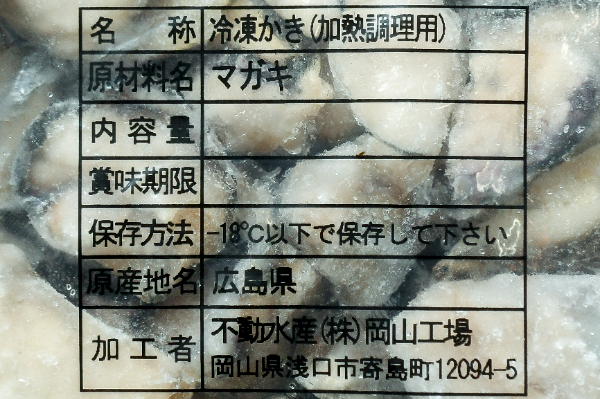 名称 冷凍かき(加熱調理用)
原材料名 マガキ
内容量
賞味期限
保存方法 -18℃以下で保存して下さい
原産地名 広島県
加工者 不動水産(株)岡山工場
岡山県浅口市寄島町12094-5